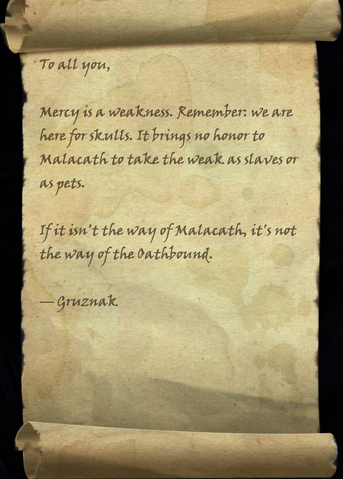 To all you,
Mercy is a weakness. Remember: we are
here for skulls. It brings no honor to
Malacath to take the weak as slaves or
as pets.
If it isn't the way of Malacath, it's not
the way of the Oathbound.
— Gruznak